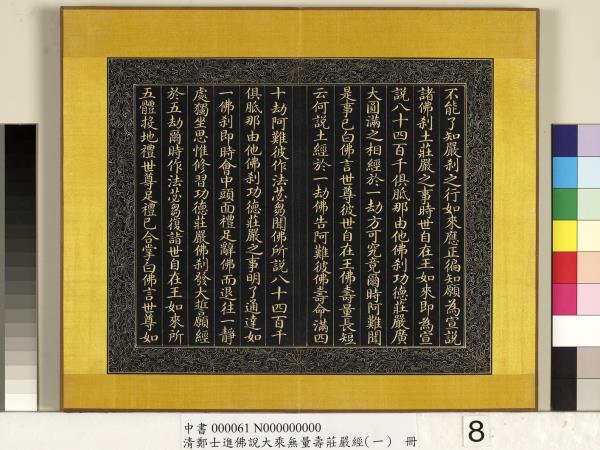 不能了知嚴刹之行如來應正徧知願為宣說
諸佛刹土莊嚴之事時世自在王如來即為宣
說八十四百千俱胝那由他佛刹功德莊嚴廣
大圓滿之相經於一劫方可究竟爾時阿難聞
是事已白佛言世尊彼世自在王佛壽量長短
云何說土經於一劫佛告阿難彼佛壽命滿四
十劫阿難彼作法苾芻聞佛所說八十四百千
俱胝那由他佛刹功德莊嚴之事明了通達如
一佛刹即時會中頭面禮足辭佛而退往一靜
處獨坐思惟修習功德莊嚴佛刹發大誓願經
於五劫爾時作法苾芻復詣世自在王如來所
五體投地禮世尊足禮已合掌白佛言世尊如
中書 000061 N000000000
清鄭士進佛說大乘無量壽莊嚴經(一) 冊
8